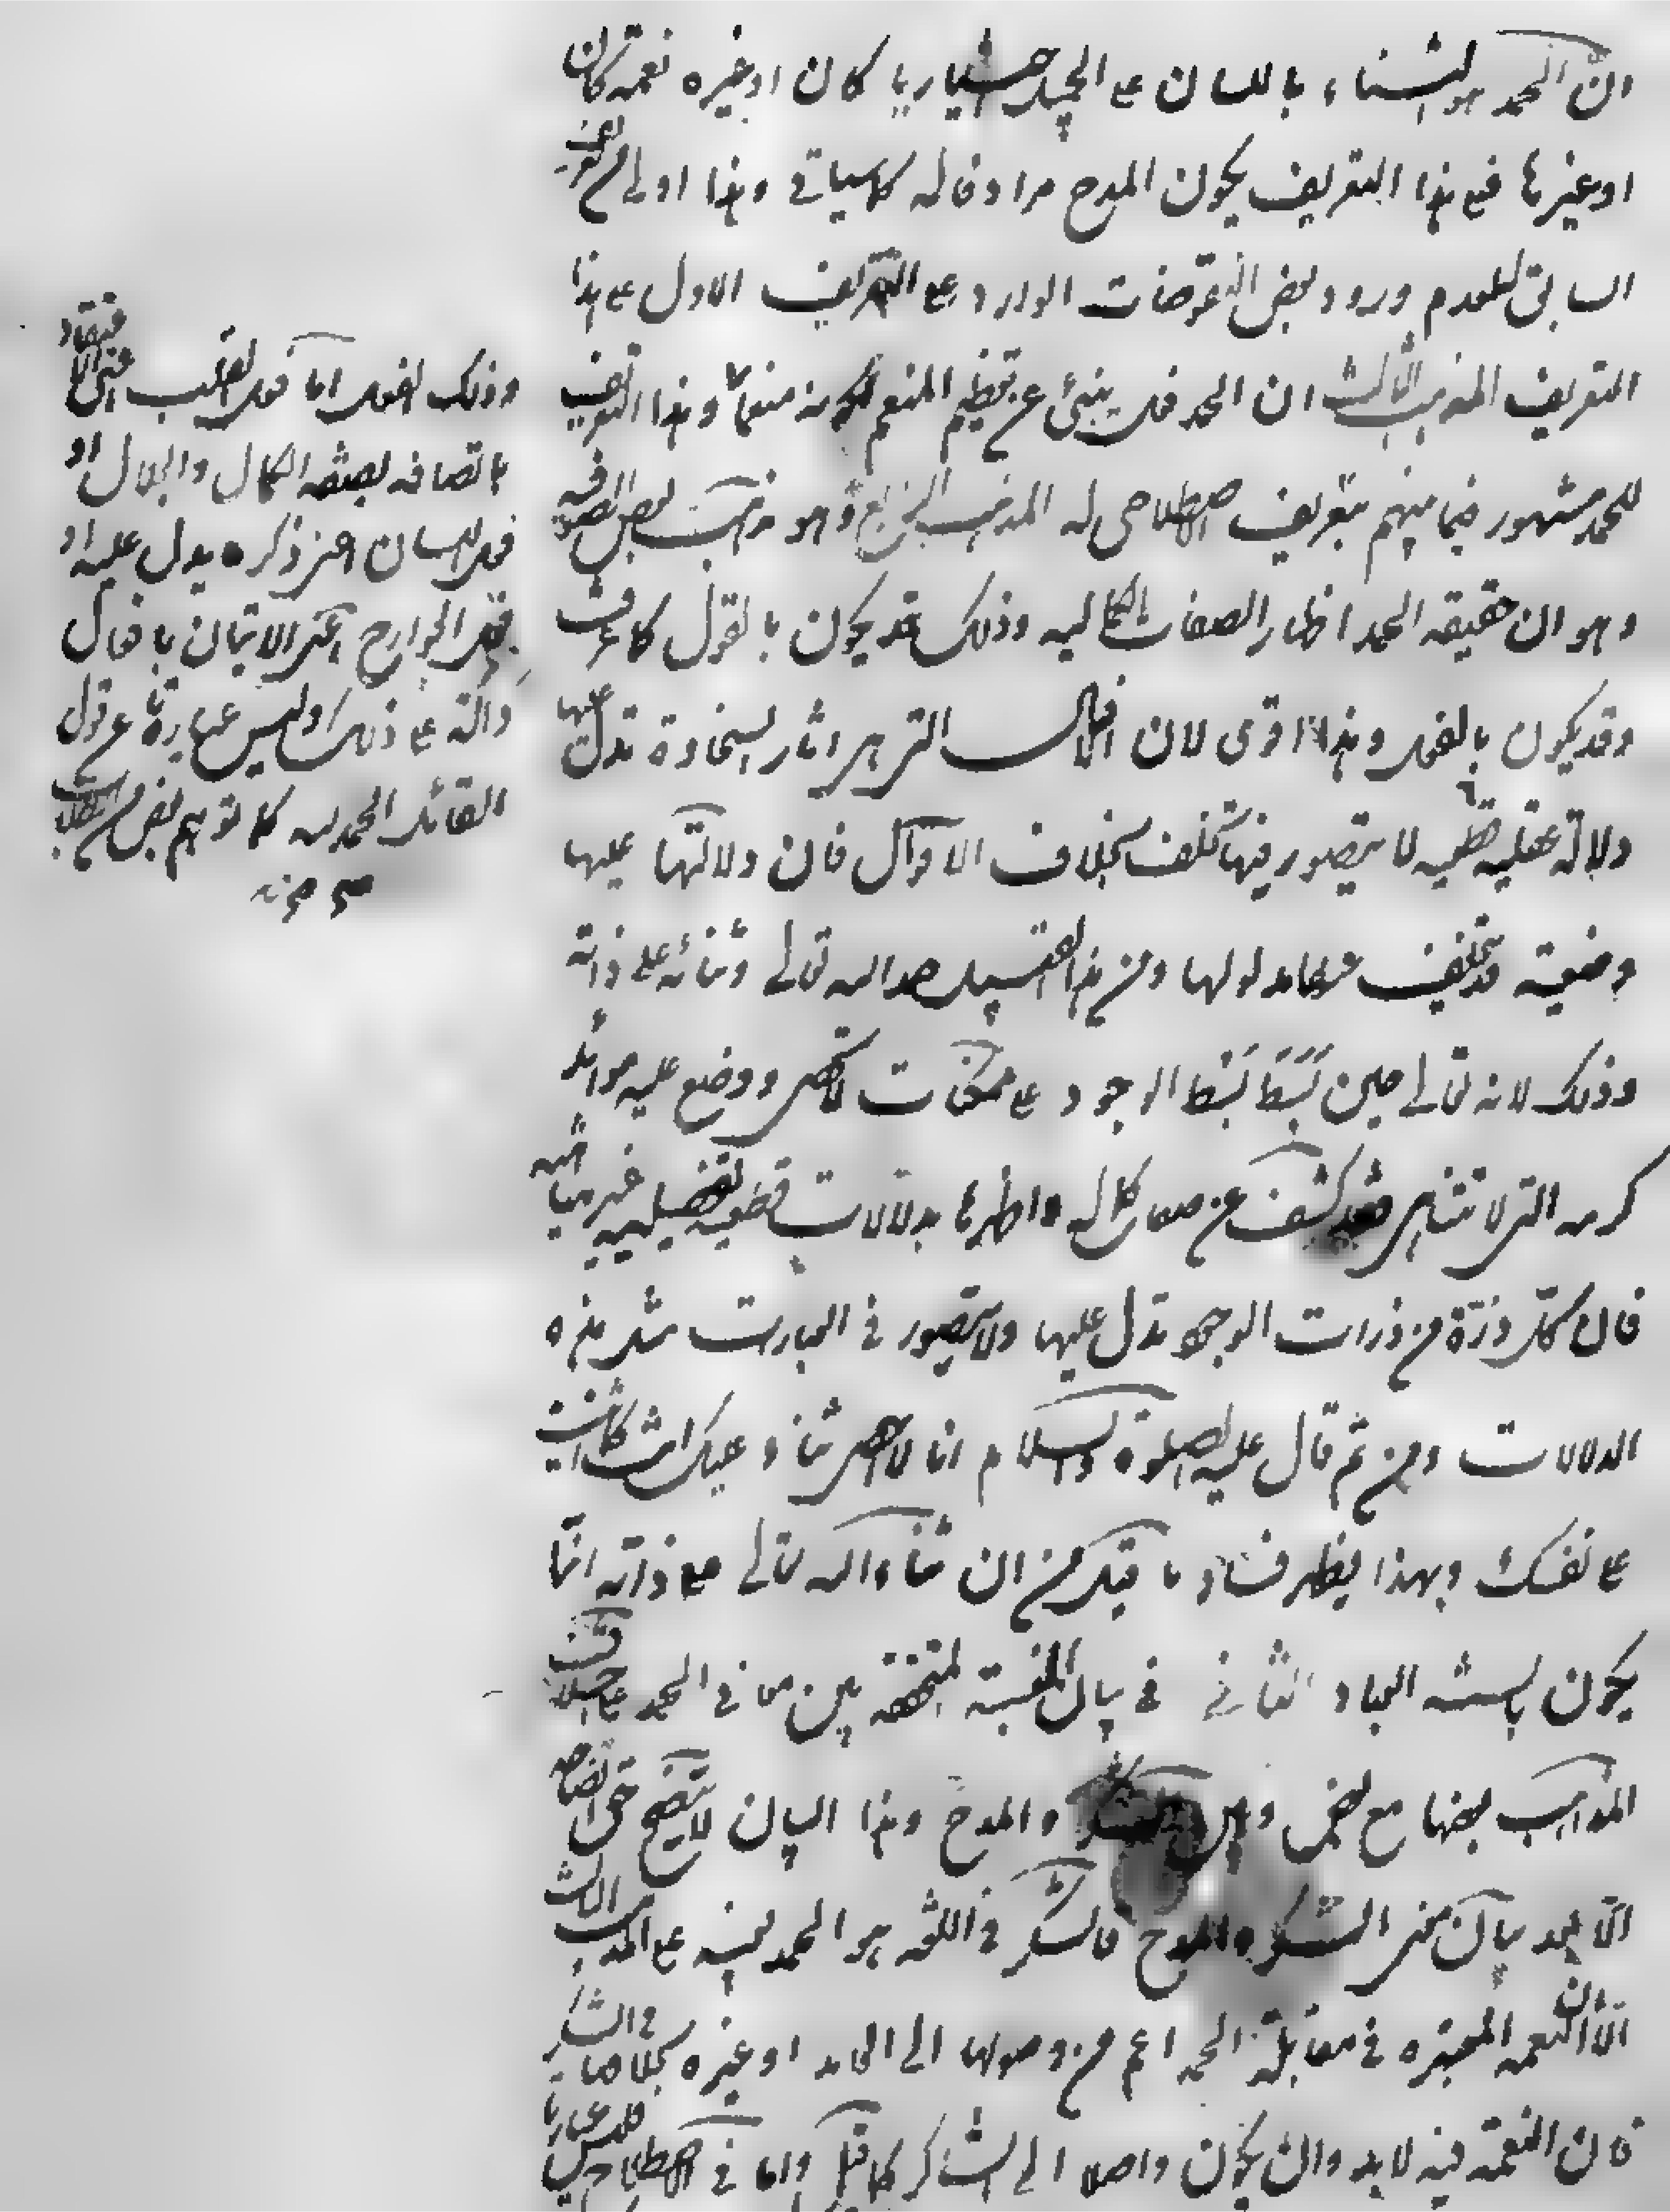 ان الحمد هو الثناء باللسان على الجميل اختياريا كان او غيره نعمة كان
او غيرها فعلى هذا التعريف يكون المدح مرادفا له كما سياتي وهذا اولى من التعريف
السابق لعدم ورود بعض النقوضات الوارد على التعريف الاول على هذا
التعريف المذهب الثالث ان الحمد فعل ينبئ عن تعظيم المنعم لكونه منعما وهذا التعريف
للحمد مشهور فيما بينهم بتعريف اصطلاحي له المذهب الرابع وهو مذهب بعض الصوفيه
وهو ان حقيقه الحمد اظهار الصفات الكماليه وذلك قد يكون بالقول كما عرفت
وقد يكون بالفعل وهذا اقوى لان الافعال التي هي اثار السخاوة تدل عليها
دلالة عقليه قطعيه لا يتصور فيها تخلف بخلاف الاقوال فان دلالتها عليها
وضعية وقد يتخلف عنها مدلولها ومن هذا القبيل حمد الله تعالى وثنائه على ذاته
وذلك لانه تعالى حين بسط بساط الوجود على ممكنات لا تحصى ووضع عليه موائد
كرمه التي لا تتناهى فقد كشف عن صفات كماله واظهرها بدلالات قطعيه تفصيليه غير متناهيه
فان كل ذرة من ذرات الوجود تدل عليها ولا يتصور في العبارت مثل هذه
الدلالات ومن ثم قال عليه الصلوة والسلام انا لا احصي ثناء عليك انت كما اثنيت
على نفسك وبهذا يظهر فساد ما قيل من ان ثناء الله تعالى على ذاته انما
يكون بالسنه العباد الثاني في بيان النسبة المتحققه بين معاني الحمد على اختلاف
المذاهب بعضها مع بعض وبين الشكر والمدح وهذا البيان لا يتضح حق اتضاحه
الا بعد بيان معنى الشكر والمدح فالشكر في اللغه هو الحمد بعينه على المذهب الثالث
الا ان النعمه المعتبره في مقابلة الحمد اعم من وصولها الى الحامد او غيره بخلافها في الشكر
فان النعمة فيه لا بد وان يكون واصلا الى الشاكر كما قيل واما في الاصطلاح فليس عبارة
وذلك الفعل اما فعل القلب اعني الاعتقاد
باتصافه بصفة الكمال والجلال او
فعل اللسان اعني ذكره يدل عليه او
فعل الجوارح اعني الاتيان بافعال
دالة على ذلك وليس عبارة عن قول
القائل الحمد لله كما توهم بعض من
صح منه